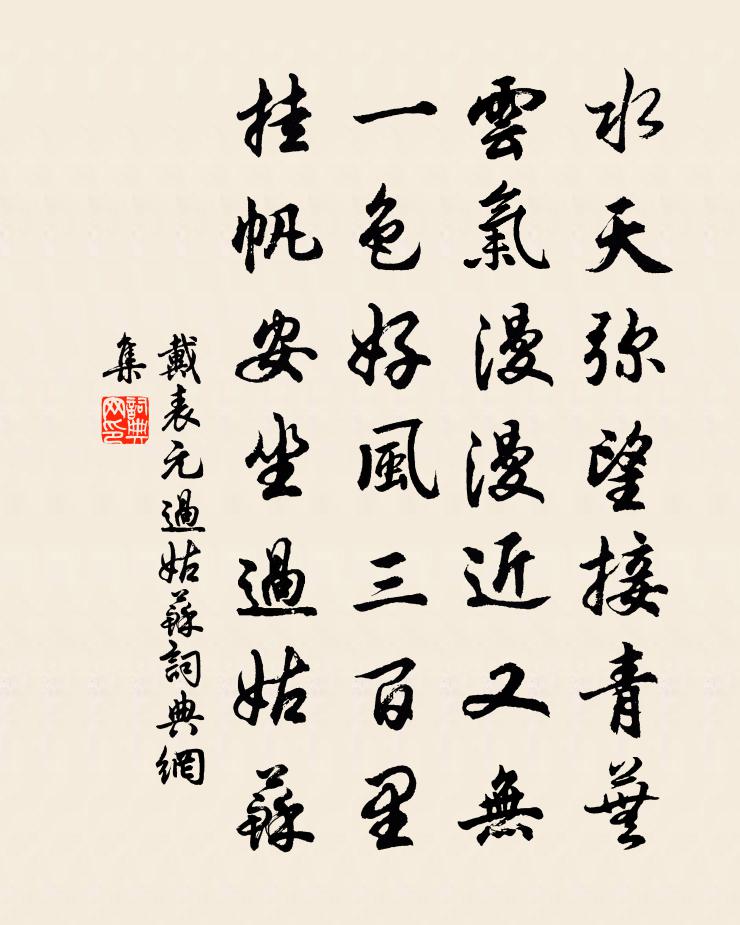 水天弥望接青蕪
雲氣漫漫近又無
一色好風三百里
挂帆安坐過姑蘇
戴表元過姑蘇詞典網
集
詞典
网印